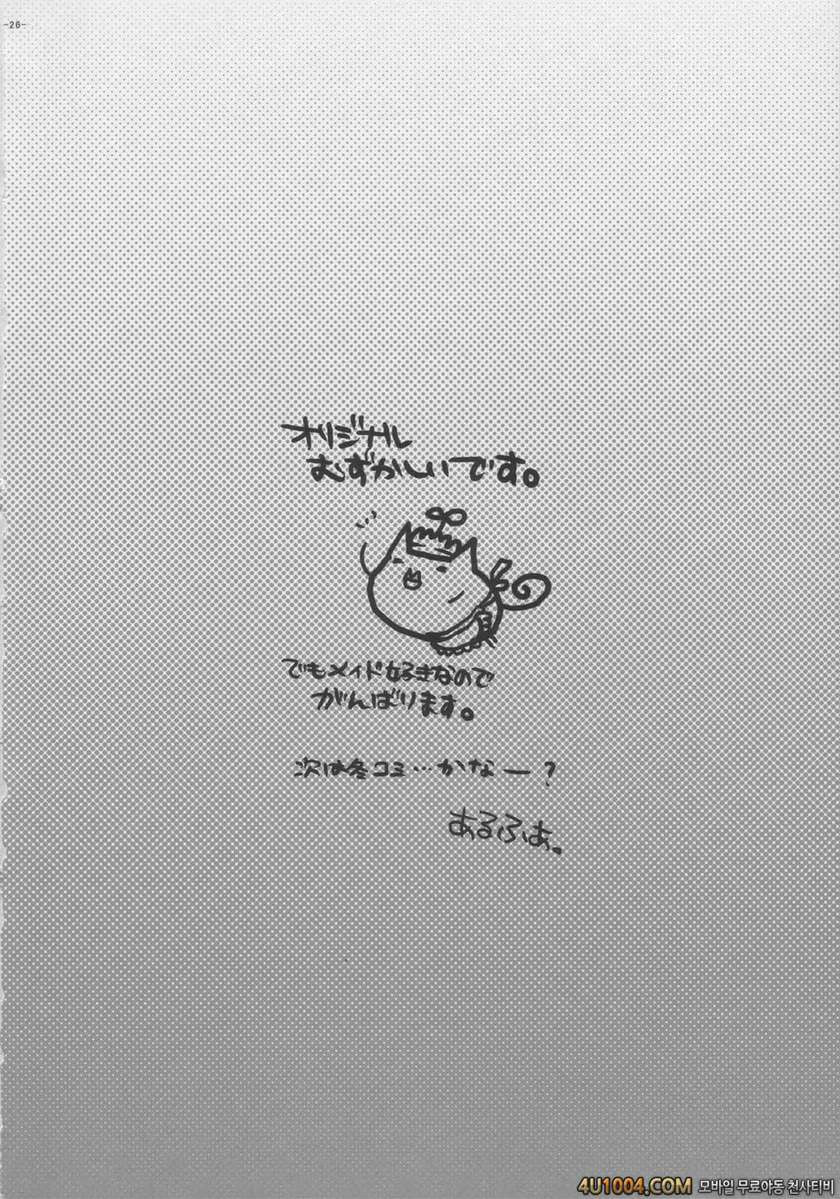 -26-
オリジナル
むずかしいです。
でもメイド好きなので
がんばります。
次は冬コミ…かなー?
あるふぁ。
4U1004.COM 모바일 무료야동 천사티비